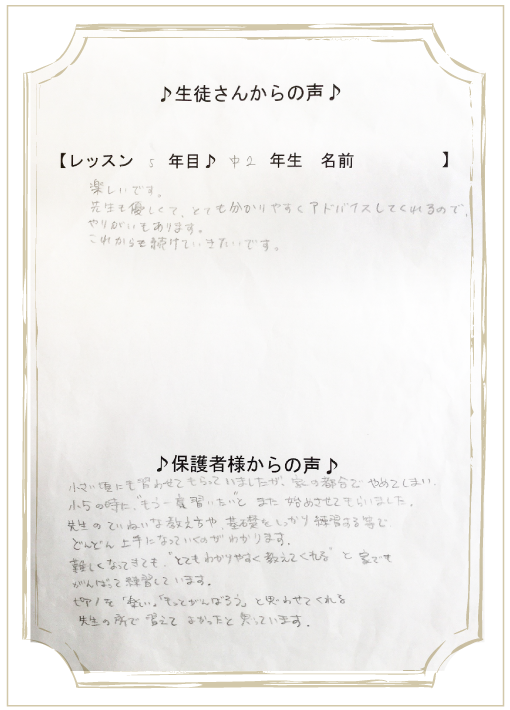 ♪生徒さんからの声♪
【レッスン 5 年目♪ 中2 年生 名前 】
楽しいです。
先生も優しくて、とても分かりやすくアドバイスしてくれるので、
やりがいもあります。
これからも続けていきたいです。
♪保護者様からの声♪
小さい頃にも習わせてもらっていましたが、家の都合でやめてしまい、
小5の時に、"もう一度習いたい"と また 始めさせてもらいました。
先生のていねいな教え方や、基礎をしっかり練習する事で
どんどん上手になっていくのがわかります。
難しくなってきても、"とてもわかりやすく教えてくれる"と 家でも
がんばって練習しています。
ピアノを「楽しい。」「もっとがんばろう」と思わせてくれる
先生の所で習えて よかったと思っています。